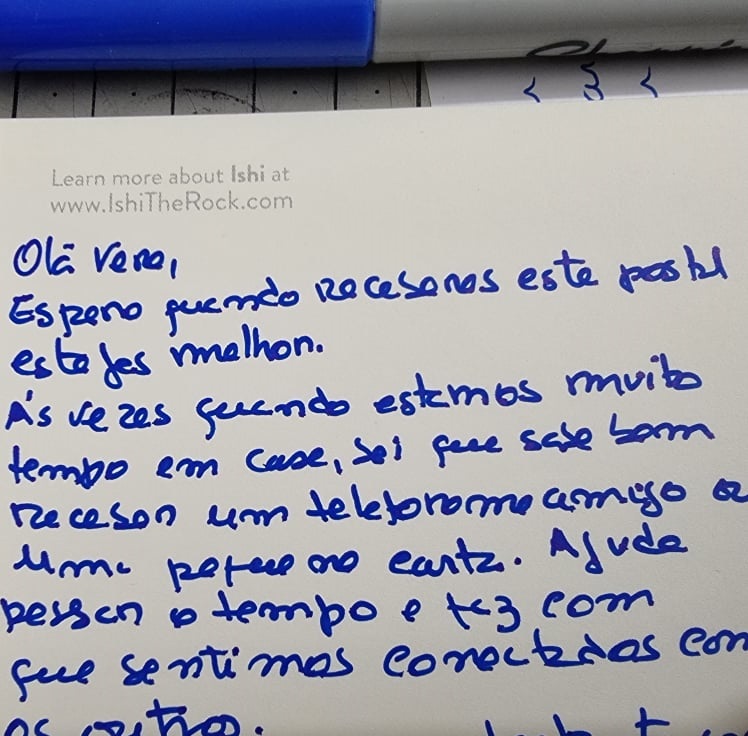 Learn more about Ishi at
www.IshiTheRock.com
Olá Vera,
Espero quando receberes este postal
estejes melhor.
Ás vezes quando estamos muito
tempo em casa, sei que sabe bem
receber um telefonema amigo ou
uma pequeno carta. Ajuda
passar o tempo e faz com
que sentimos conectados com
os outros.